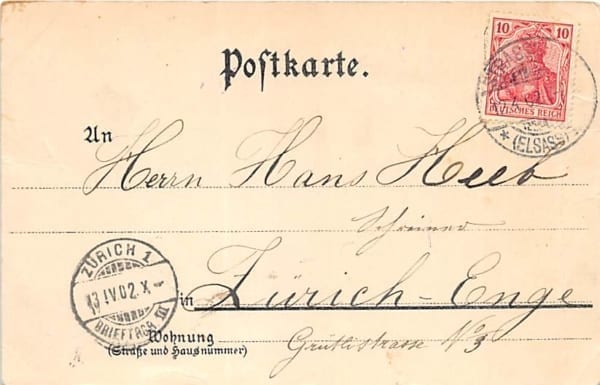 Postkarte.
10 10
DEUTSCHES REICH
* (ELSASS)
An
Herrn Hans Heeb
Schreiner
in Zürich-Enge
Wohnung
(Straße und Hausnummer)
Grütlistrasse No 3
ZÜRICH 1
13 IV 02. X
BRIEFTRÄG III